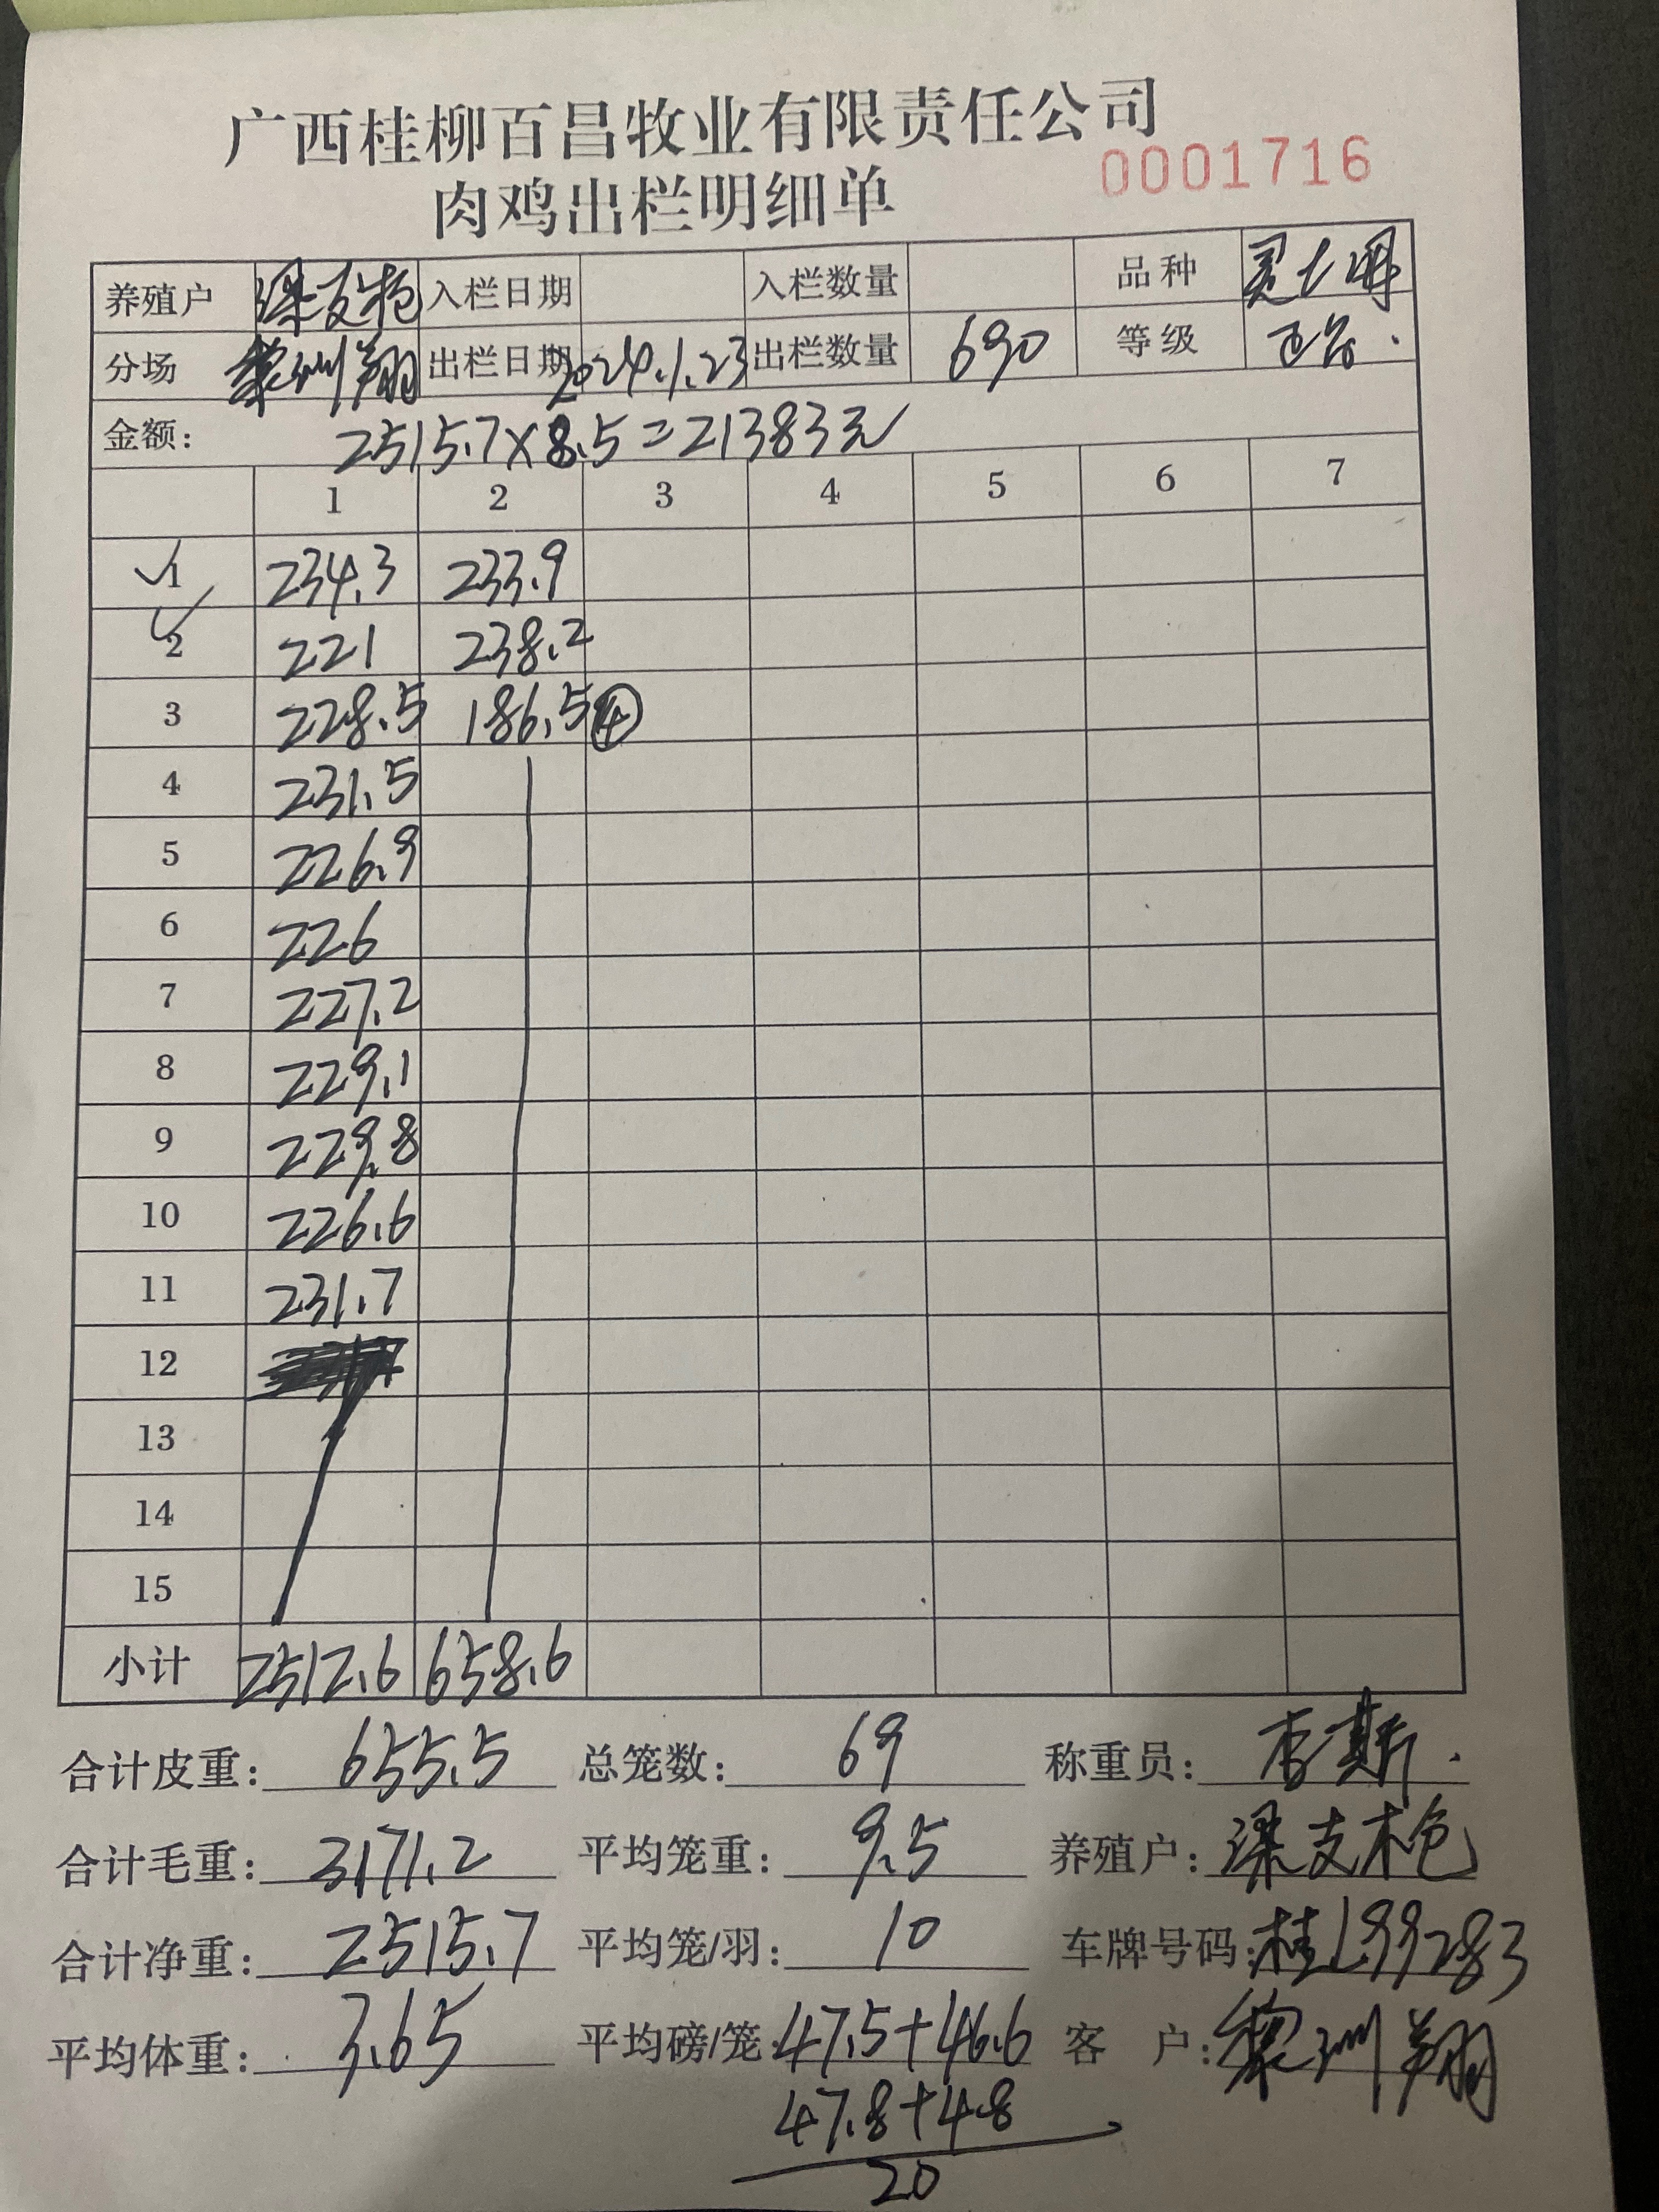 广西桂柳百昌牧业有限责任公司
肉鸡出栏明细单 0001716
养殖户 梁支枹 入栏日期 入栏数量 品种
分场 黎洲翔 出栏日期 2024.1.23 出栏数量 690 等级
金额: 2515.7×8.5=21383元
1 2 3 4 5 6 7
1 234.3 233.9
2 221 238.2
3 228.5 186.5 ④
4 231.5
5 226.9
6 226
7 227.2
8 229.1
9 229.8
10 226.6
11 231.7
12
13
14
15
小计 2512.6 658.6
合计皮重: 655.5 总笼数: 69 称重员: 李斯.
合计毛重: 3171.2 平均笼重: 9.5 养殖户: 梁支枹
合计净重: 2515.7 平均笼/羽: 10 车牌号码: 桂L99283
平均体重: 3.65 平均磅/笼: 47.5+46.6 客 户: 黎洲翔
47.8+4.8
20